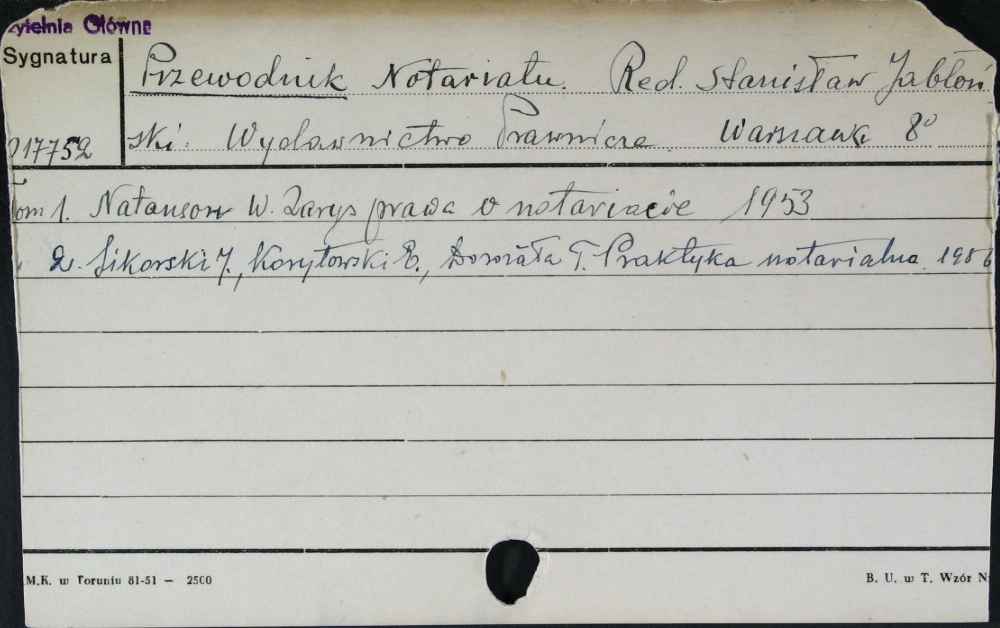 zytelnia Główna
Sygnatura
Przewodnik Notariatu. Red. Stanisław Jabłoń
ski. Wydawnictwo Prawnicze Warszawa 8°
017752
Tom 1. Natanson W. Zarys prawa o notariacie 1953
2. Sikorski J., Korytowski E., Dowżała T. Praktyka notarialna. 1956
M.K. w Toruniu 81-51 — 2500
B. U. w T. Wzór N